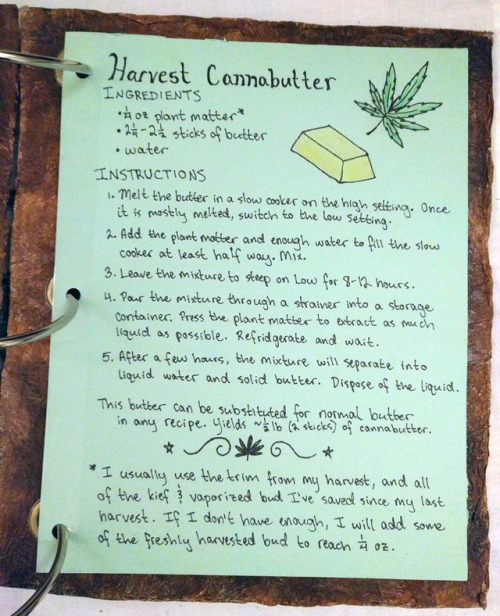 Harvest Cannabutter
INGREDIENTS
• ¼ oz plant matter*
• 2¼-2½ sticks of butter
• water
INSTRUCTIONS
1. Melt the butter in a slow cooker on the high setting. Once
it is mostly melted, switch to the low setting.
2. Add the plant matter and enough water to fill the slow
cooker at least half way. Mix.
3. Leave the mixture to steep on Low for 8-12 hours.
4. Pour the mixture through a strainer into a storage
container. Press the plant matter to extract as much
liquid as possible. Refridgerate and wait.
5. After a few hours, the mixture will separate into
liquid water and solid butter. Dispose of the liquid.
This butter can be substituted for normal butter
in any recipe. Yields ~½ lb (2 sticks) of cannabutter.
* I usually use the trim from my harvest, and all
of the kief & vaporized bud I've saved since my last
harvest. If I don't have enough, I will add some
of the freshly harvested bud to reach ¼ oz.